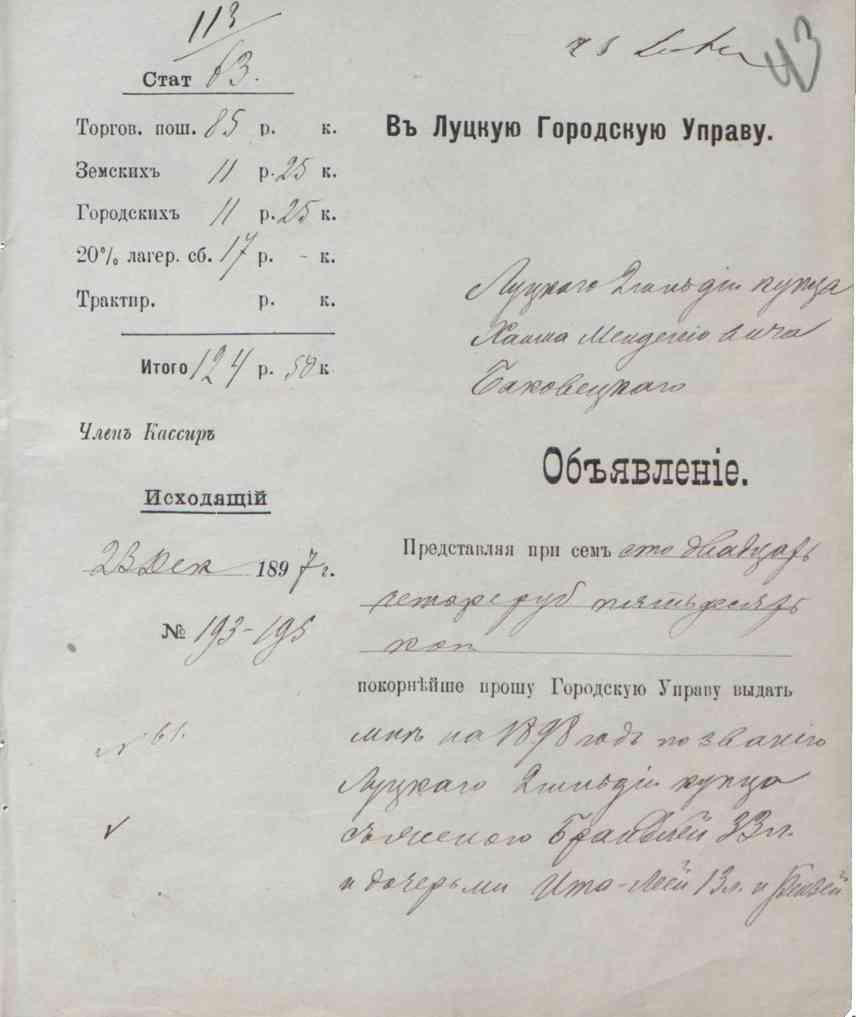 113
Стат 63.
Торгов. пош. 85 р. к.
Земскихъ 11 р. 25 к.
Городскихъ 11 р. 25 к.
20% лагер. сб. 17 р. - к.
Трактир. р. к.
Итого 124 р. 50 к
Членъ Кассиръ
Исходящій
23 Дек 1897 г.
№ 193-195
№ 61.
43
Въ Луцкую Городскую Управу.
Луцкаго 2 гильдіи купца
Хаима Менделіовича
Баковецкаго
Объявленіе.
Представляя при семъ сто двадцать
четыре руб пятьдесять
коп
покорнѣйше прошу Городскую Управу выдать
мнѣ на 1898 годъ по званію
Луцкаго 2 гильдіи купца
съ женою 33 л.
и дочерьми Ита-Леей 13 л. и